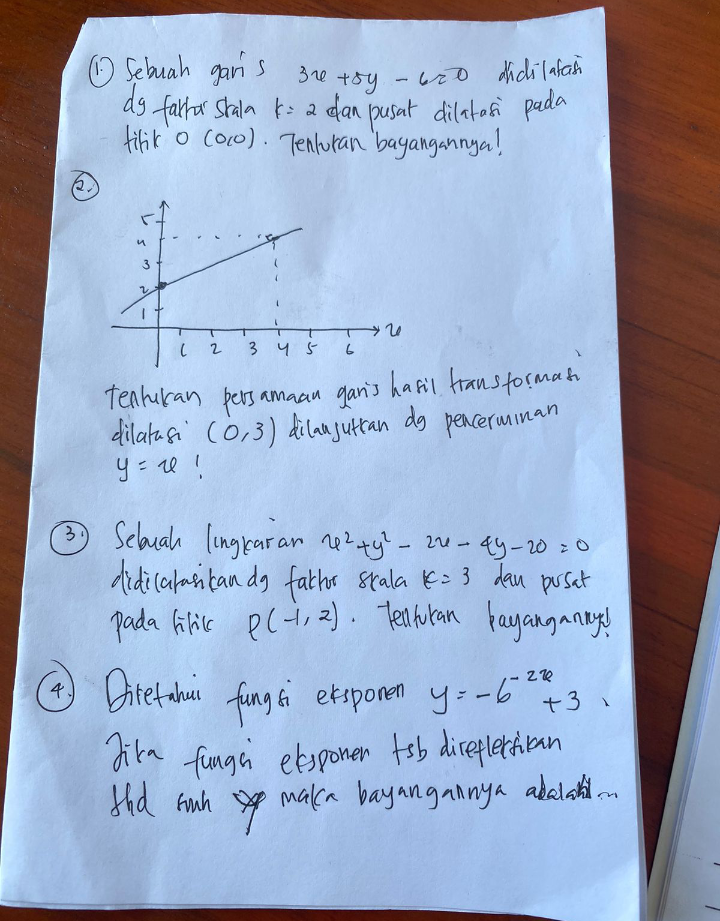 1. Sebuah garis 3x + 5y - 6 = 0 didilatasi
dg faktor skala k = 2 dan pusat dilatasi pada
titik O (0,0). Tentukan bayangannya!
2.
5
4
3
2
1
1 2 3 4 5 6 x
Tentukan persamaan garis hasil transformasi
dilatasi (0,3) dilanjutkan dg pencerminan
y = x !
3. Sebuah lingkaran x² + y² - 2x - 4y - 20 = 0
didilatasikan dg faktor skala k = 3 dan pusat
pada titik P(-1, 2). Tentukan bayangannya!
4. Diketahui fungsi eksponen y = -6⁻²ˣ + 3.
Jika fungsi eksponen tsb direfleksikan
thd smb y maka bayangannya adalah ...